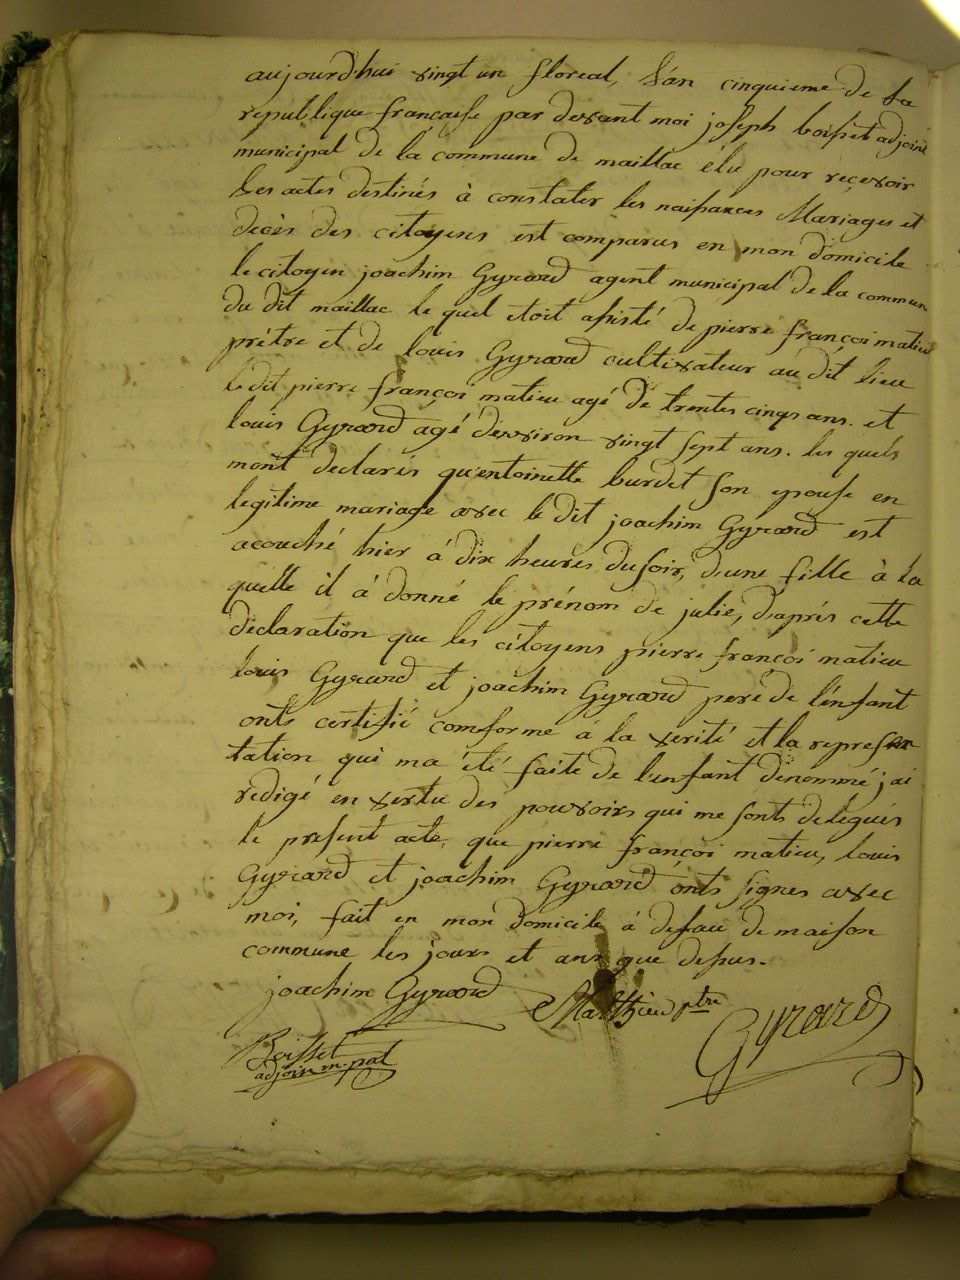 aujourdhui vingt un floreal, l'an cinquieme de la
republique française par devant moi joseph boisset adjoint
municipal de la commune de maillac élu pour recevoir
les actes destinés à constater les naissances Mariages et
decès des citoyens est comparus en mon domicile
le citoyen joachim Gyrard agent municipal de la commune
du dit maillac le quel etoit assisté de pierre françoi matieu
prétre et de louis Gyrard cultivateur au dit lieu
le dit pierre françoi matieu agé de trentes cinqs ans. et
louis Gyrard agé d'environ vingt sept ans. les quels
mont declarés qu'entoinette burdet son epouse en
legitime mariage avec le dit joachim Gyrard est
acouché hier à dix heures du soir, d'une fille à la
quelle il à donné le prénom de julie, d'aprés cette
déclaration que les citoyens pierre françoi matieu
louis Gyrard et joachim Gyrard pere de l'enfant
onts certifié comforme à la verité et la represen
tation qui ma été faite de l'enfant dénommé j'ai
redigé en vertu des pouvoirs qui me sonts delegués
le present acte, que pierre françoi matieu, louis
Gyrard et joachim Gyrard onts signes avec
moi, fait en mon domicile à defau de maison
commune les jours et ans que dessus.
joachim Gyrard
Matthieu ptre
Gyrard
Boisset
adjoin m.pal